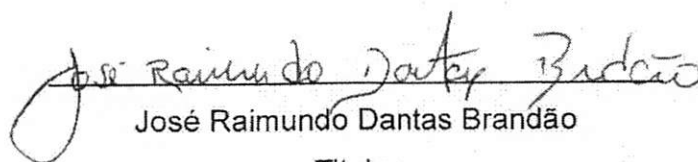 José Raimundo Dantas Brandão
José Raimundo Dantas Brandão